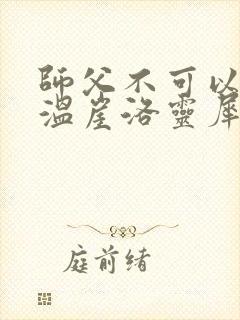 師父不可以
溫崖洛靈犀
庭前緒